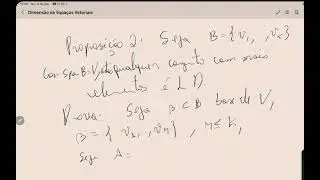 Dimensão de Espaços Vetoriais
Proposição 2: Seja B = {v₁, , vₖ}
com Span B = V, então qualquer conjunto com mais
elementos é L D.
Prova: Seja β ⊂ B base de V,
β = { v₁, , vₙ } , n ≤ k,
Seja A =